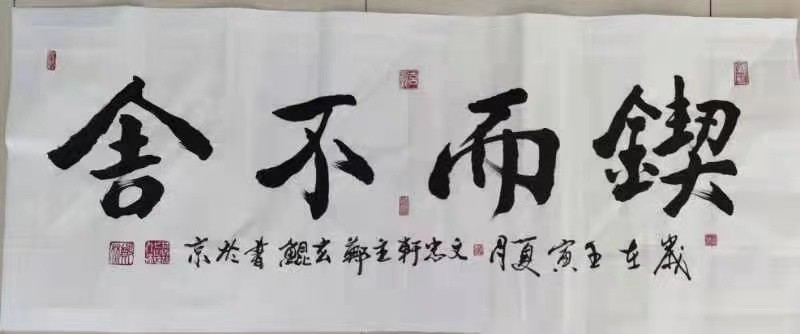 鍥而不舍
歲在壬寅夏月文忠軒主鄭玄鯤書於京